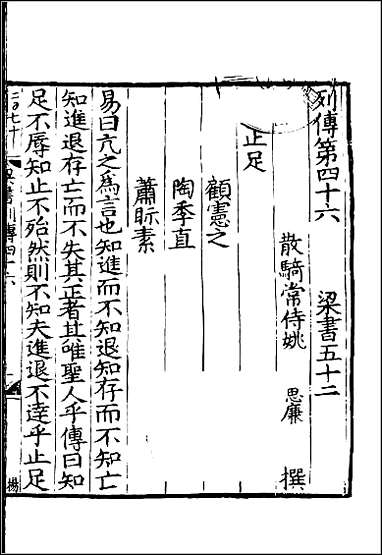 列傳第四十六 梁書五十二
散騎常侍姚 思廉 撰
止足
顧憲之
陶季直
蕭眎素
易曰亢之爲言也知進而不知退知存而不知亡
知進退存亡而不失其正者其唯聖人乎傳曰知
足不辱知止不殆然則不知夫進退不逹乎止足
楊